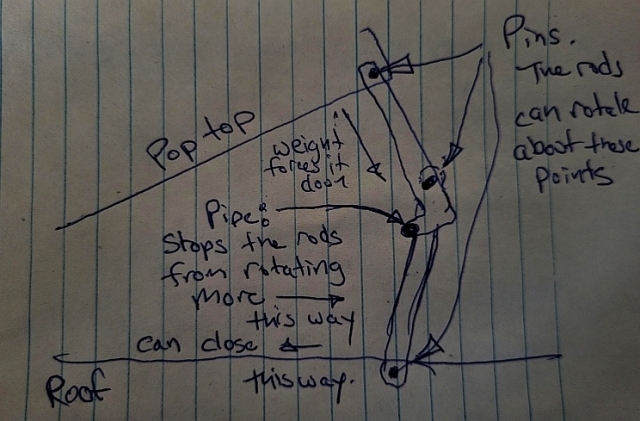 Pins.
The rods
can rotate
about these
points
Pop top
weight
forces it
down
Pipe:
Stops the rods
from rotating
more
this way
can close
this way.
Roof